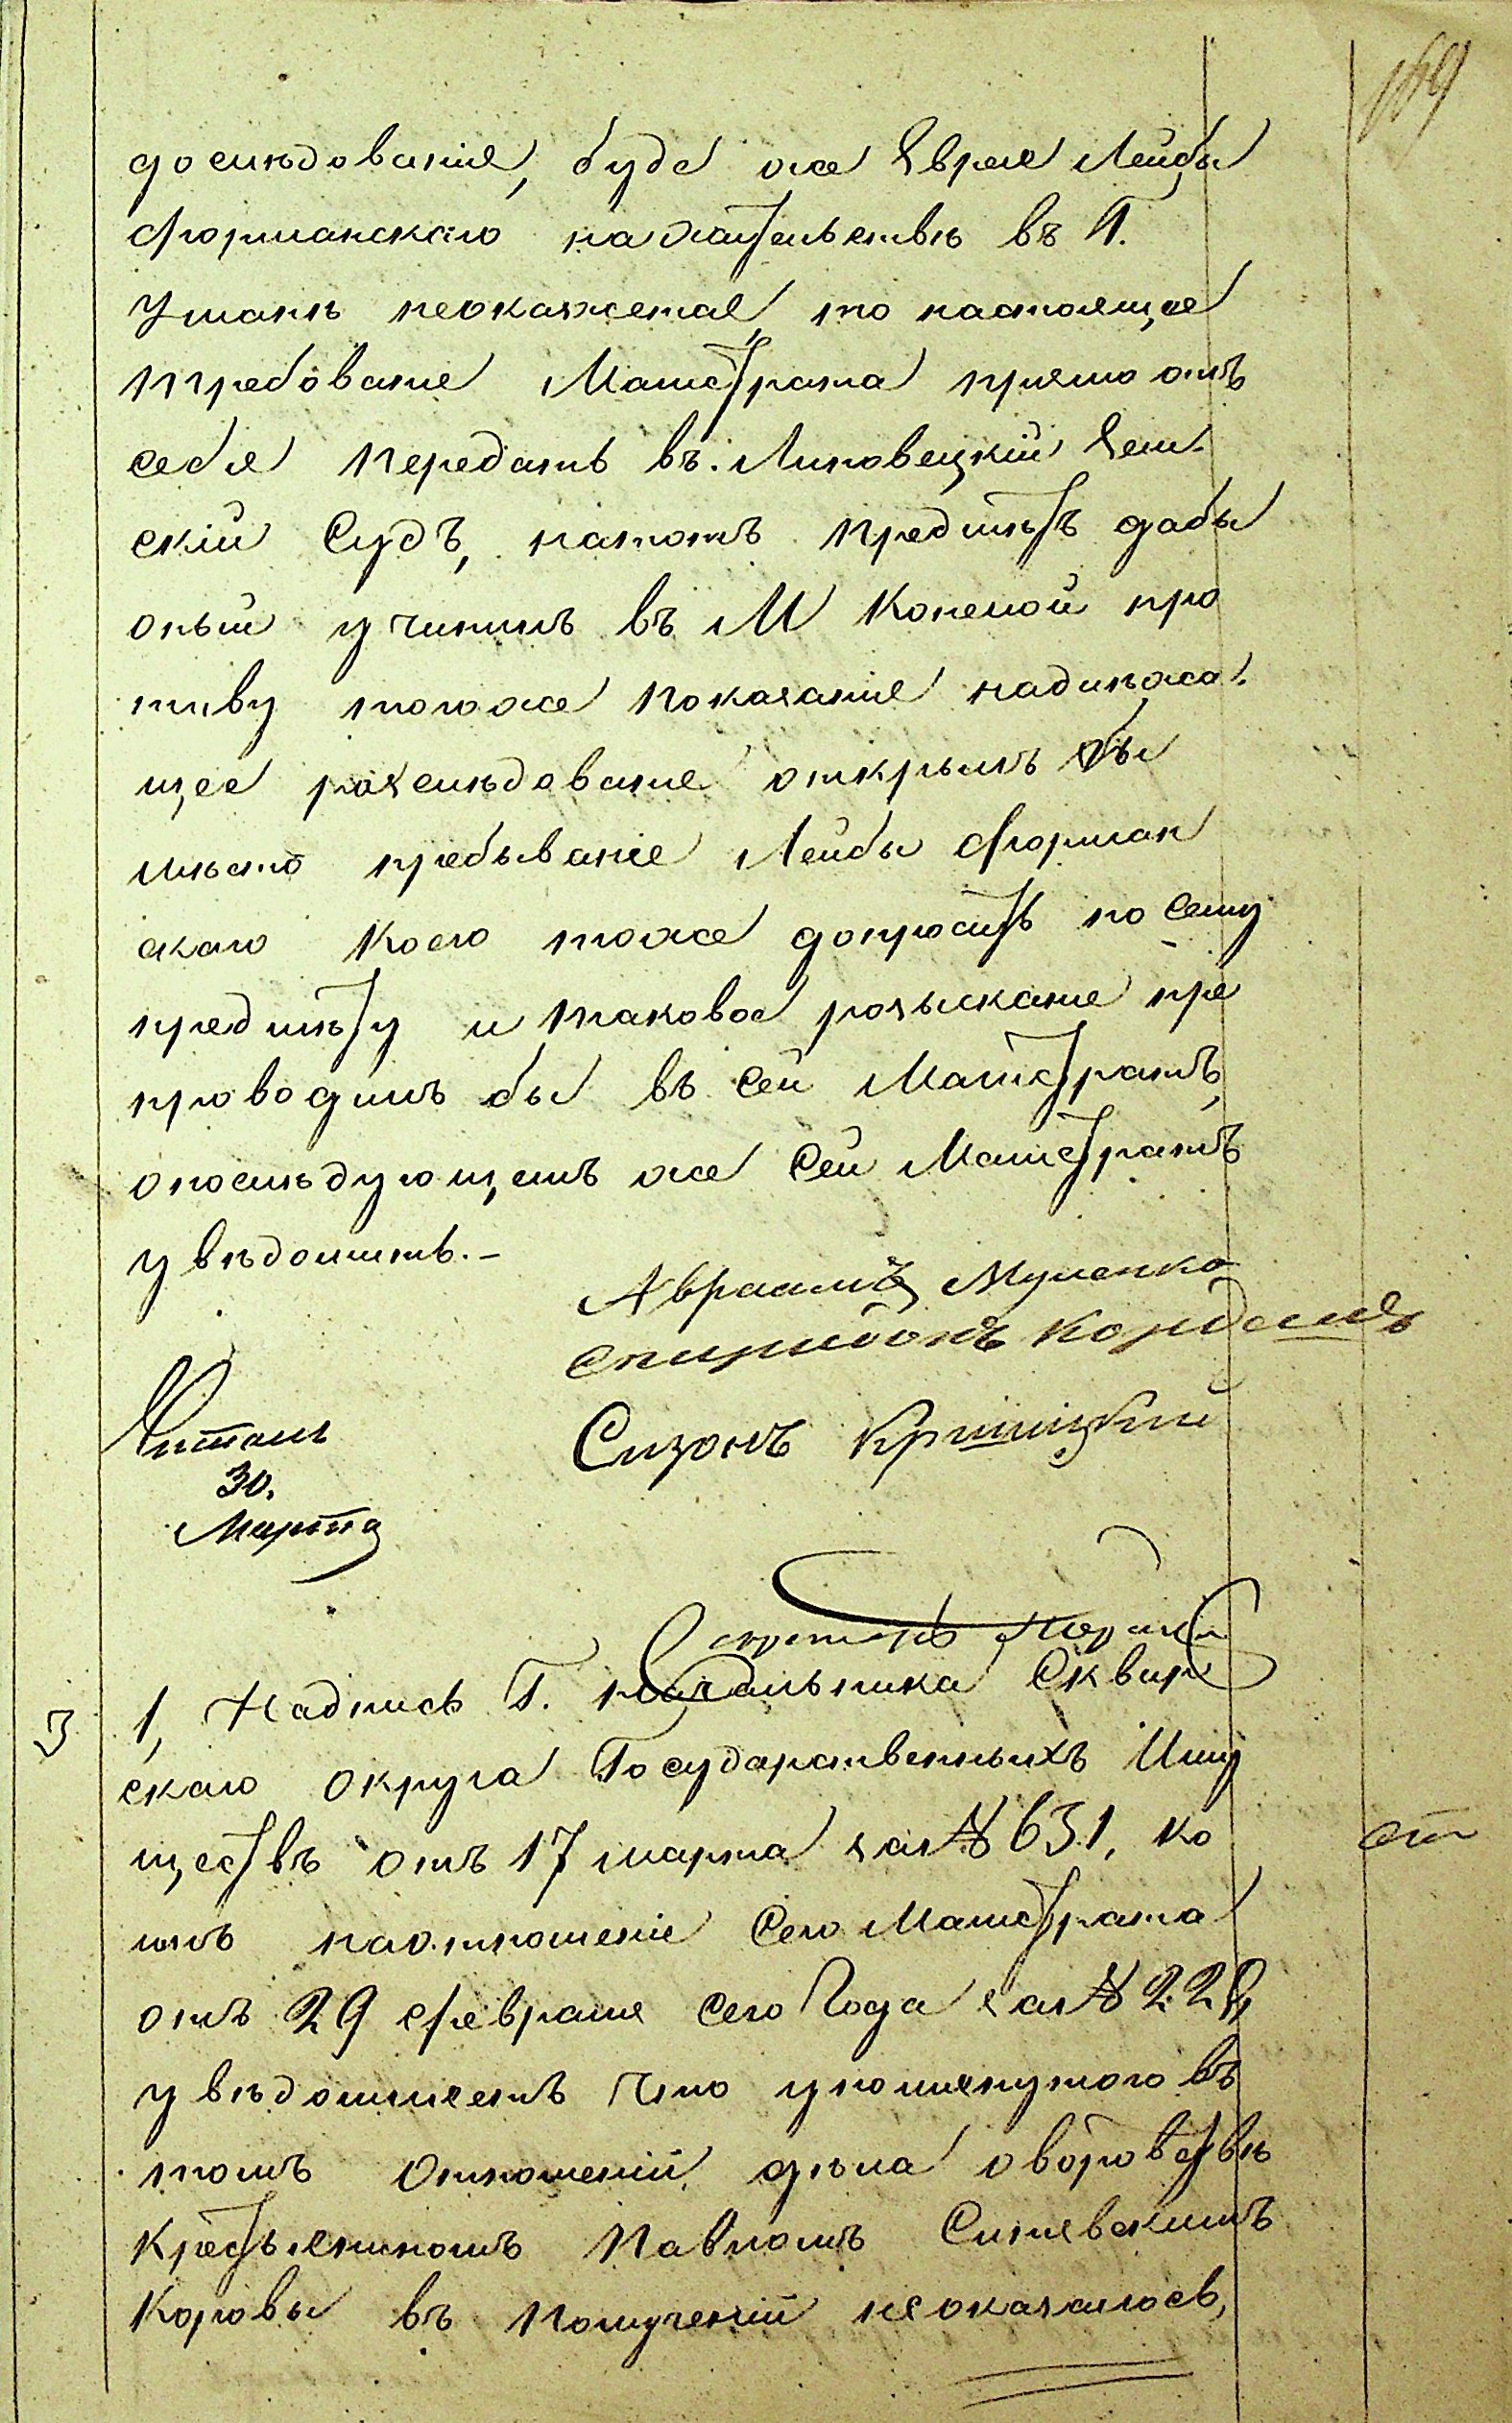 169
дослѣдованія, буде же Еврея Лейбы
Фурманскаго нажательствѣ въ Г.
Уманѣ неокажется, то настоящее
требованіе Магистрата прямо отъ
себя передать въ Липовецкій Зем.
скій Судъ, натотъ предмѣтъ дабы
оный учинилъ въ М Конелой про
тиву тогоже показанія надлежа.
щее разслѣдованіе открылъ бы
мѣсто пребываніе Лейбы Фурман
скаго коего тоже допросить по сему
предмѣту и таковое розысканіе пре
проводилъ бы въ сей Магистратъ,
опослѣдующемъ же сей Магистратъ
увѣдомить.-
Авраамъ Мусенко
Спиридонъ Кордашъ
Сизонъ Криницкий
Читалъ
30.
Марта
Секретарь
3
1, Надпись Г. Начальника Сквир
скаго округа Государственныхъ Иму
ществъ отъ 17 марта за № 631, ко
имъ наотношеніе сего Магистрата
отъ 29 февраля сего Года за № 228,
увѣдомляетъ что упомянутого въ
томъ отношеніи, дѣла оворовствѣ
крестьяниномъ Павломъ Синевскимъ
коровы въ полученіи неоказалось,